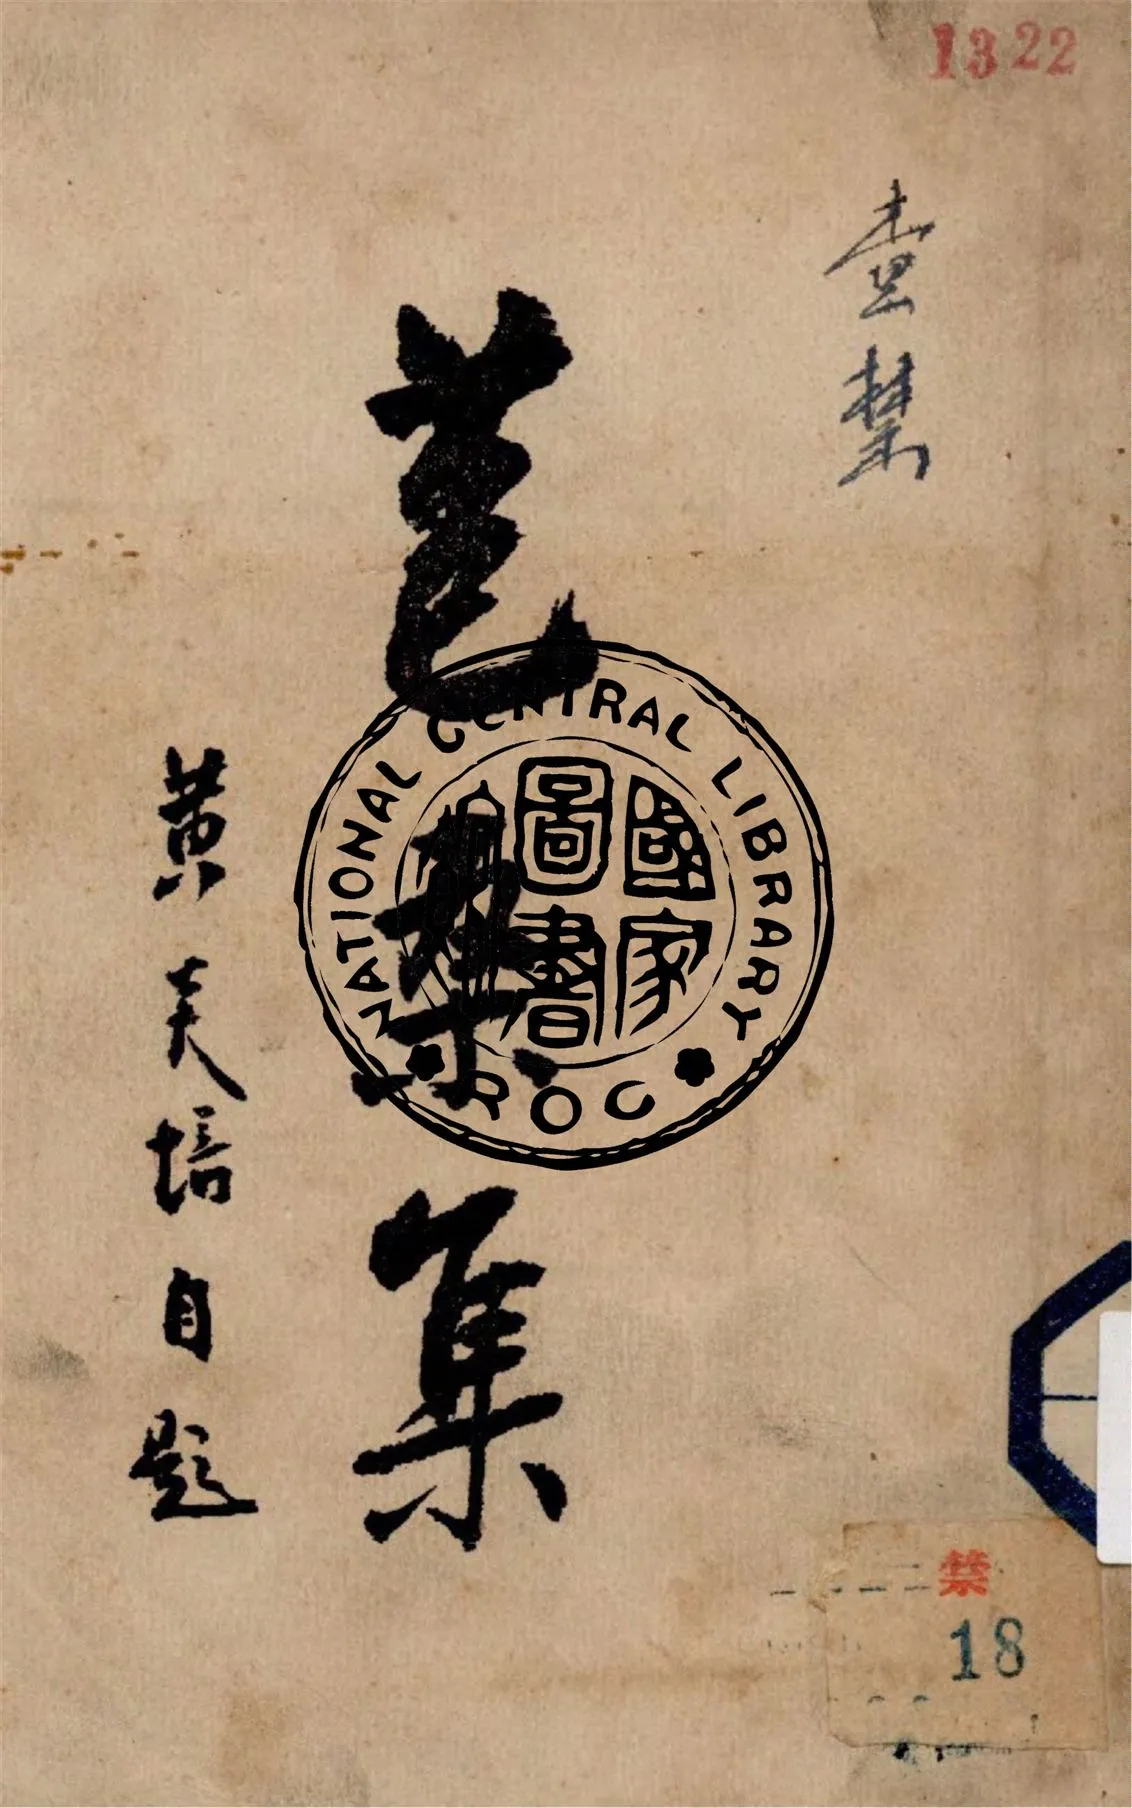 1322
查禁
苞桑集
黃炎培自題
NATIONAL CENTRAL LIBRARY
國家
圖書
館
ROC
禁
18